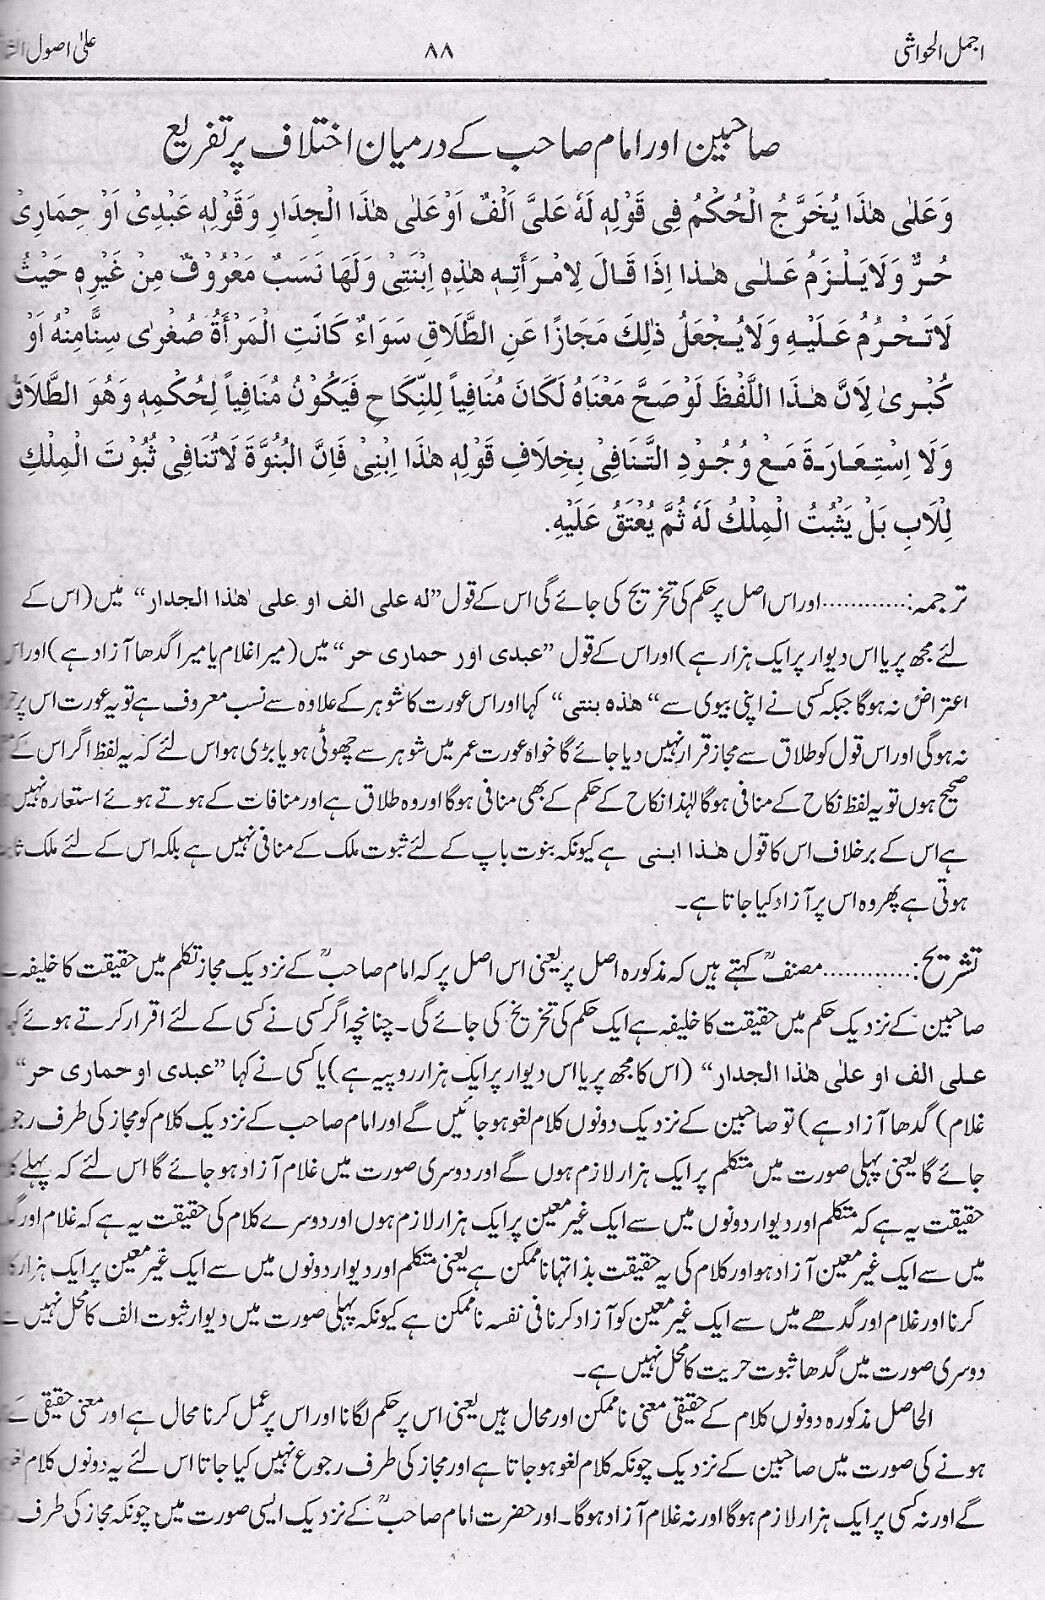 اجمل الحواشی
۸۸
علیٰ اصول
صاحبین اور امام صاحب کے درمیان اختلاف پر تفریع
وَعَلٰی هٰذَا یُخَرَّجُ الْحُکْمُ فِیْ قَوْلِهٖ لَهٗ عَلَیَّ اَلْفٌ اَوْ عَلٰی هٰذَا الْجِدَارِ وَقَوْلِهٖ عَبْدِیْ اَوْ حِمَارِیْ
حُرٌّ وَلَا یَلْزَمُ عَلٰی هٰذَا اِذَا قَالَ لِامْرَأَتِهٖ هٰذِهٖ اِبْنَتِیْ وَلَهَا نَسَبٌ مَعْرُوْفٌ مِنْ غَیْرِهٖ حَیْثُ
لَا تَحْرُمُ عَلَیْهِ وَلَا یُجْعَلُ ذٰلِكَ مَجَازًا عَنِ الطَّلَاقِ سَوَاءٌ کَانَتِ الْمَرْأَةُ صُغْرٰی سِنًّا مِنْهُ اَوْ
کُبْریٰ لِاَنَّ هٰذَا اللَّفْظَ لَوْ صَحَّ مَعْنَاهُ لَکَانَ مُنَافِیاً لِلنِّکَاحِ فَیَکُوْنُ مُنَافِیاً لِحُکْمِهٖ وَهُوَ الطَّلَاقُ
وَلَا اِسْتِعَارَةَ مَعَ وُجُوْدِ التَّنَافِیْ بِخِلَافِ قَوْلِهٖ هٰذَا اِبْنِیْ فَاِنَّ الْبُنُوَّةَ لَا تُنَافِیْ ثُبُوْتَ الْمِلْكِ
لِلْاَبِ بَلْ یَثْبُتُ الْمِلْكُ لَهٗ ثُمَّ یُعْتَقُ عَلَیْهِ.
ترجمہ:............اور اس اصل پر حکم کی تخریج کی جائے گی اس کے قول ”له علی الف او علی هٰذا الجدار“ میں (اس کے
لئے مجھ پر یا اس دیوار پر ایک ہزار ہے) اور اس کے قول ”عبدی اور حماری حر“ میں (میرا غلام یا میرا گدھا آزاد ہے) اور اس
اعتراض نہ ہوگا جبکہ کسی نے اپنی بیوی سے ”هٰذه بنتی“ کہا اور اس عورت کا شوہر کے علاوہ سے نسب معروف ہے تو یہ عورت اس پر
نہ ہوگی اور اس قول کو طلاق سے مجاز قرار نہیں دیا جائے گا خواہ عورت عمر میں شوہر سے چھوٹی ہو یا بڑی ہو اس لئے کہ یہ لفظ اگر اس کے
صحیح ہوں تو یہ لفظ نکاح کے منافی ہوگا لہٰذا نکاح کے حکم کے بھی منافی ہوگا اور وہ طلاق ہے اور منافات کے ہوتے ہوئے استعارہ نہیں
ہے اس کے برخلاف اس کا قول هٰذا ابنی ہے کیونکہ بنوت باپ کے لئے ثبوت ملک کے منافی نہیں ہے بلکہ اس کے لئے ملک
ہوتی ہے پھر وہ اس پر آزاد کیا جاتا ہے۔
تشریح:............مصنفؒ کہتے ہیں کہ مذکورہ اصل پر یعنی اس اصل پر کہ امام صاحبؒ کے نزدیک مجاز تکلم میں حقیقت کا خلیفہ
صاحبین کے نزدیک حکم میں حقیقت کا خلیفہ ہے ایک حکم کی تخریج کی جائے گی۔ چنانچہ اگر کسی نے کسی کے لئے اقرار کرتے ہوئے
علی الف او علیٰ هٰذا الجدار“ (اس کا مجھ پر یا اس دیوار پر ایک ہزار روپیہ ہے) یا کسی نے کہا ”عبدی او حماری حر“
غلام) گدھا آزاد ہے) تو صاحبین کے نزدیک دونوں کلام لغو ہو جائیں گے اور امام صاحب کے نزدیک کلام کو مجاز کی طرف
جائے گا یعنی پہلی صورت میں متکلم پر ایک ہزار لازم ہوں گے اور دوسری صورت میں غلام آزاد ہو جائے گا اس لئے کہ پہلے
حقیقت یہ ہے کہ متکلم اور دیوار دونوں میں سے ایک غیر معین پر ایک ہزار لازم ہوں اور دوسرے کلام کی حقیقت یہ ہے کہ غلام اور
میں سے ایک غیر معین آزاد ہو اور کلام کی یہ حقیقت بذاتہا ناممکن ہے یعنی متکلم اور دیوار دونوں میں سے ایک غیر معین پر ایک ہزار
کرنا اور غلام اور گدھے میں سے ایک غیر معین کو آزاد کرنا فی نفسہ ناممکن ہے کیونکہ پہلی صورت میں دیوار ثبوت الف کا محل نہیں
دوسری صورت میں گدھا ثبوت حریت کا محل نہیں ہے۔
الحاصل مذکورہ دونوں کلام کے حقیقی معنی ناممکن اور محال ہیں یعنی اس پر حکم لگانا اور اس پر عمل کرنا محال ہے اور معنی حقیقی
ہونے کی صورت میں صاحبین کے نزدیک چونکہ کلام لغو ہو جاتا ہے اور مجاز کی طرف رجوع نہیں کیا جاتا اس لئے یہ دونوں کلام
گے اور نہ کسی پر ایک ہزار لازم ہوگا اور نہ غلام آزاد ہوگا۔ اور حضرت امام صاحبؒ کے نزدیک ایسی صورت میں چونکہ مجاز کی طرف